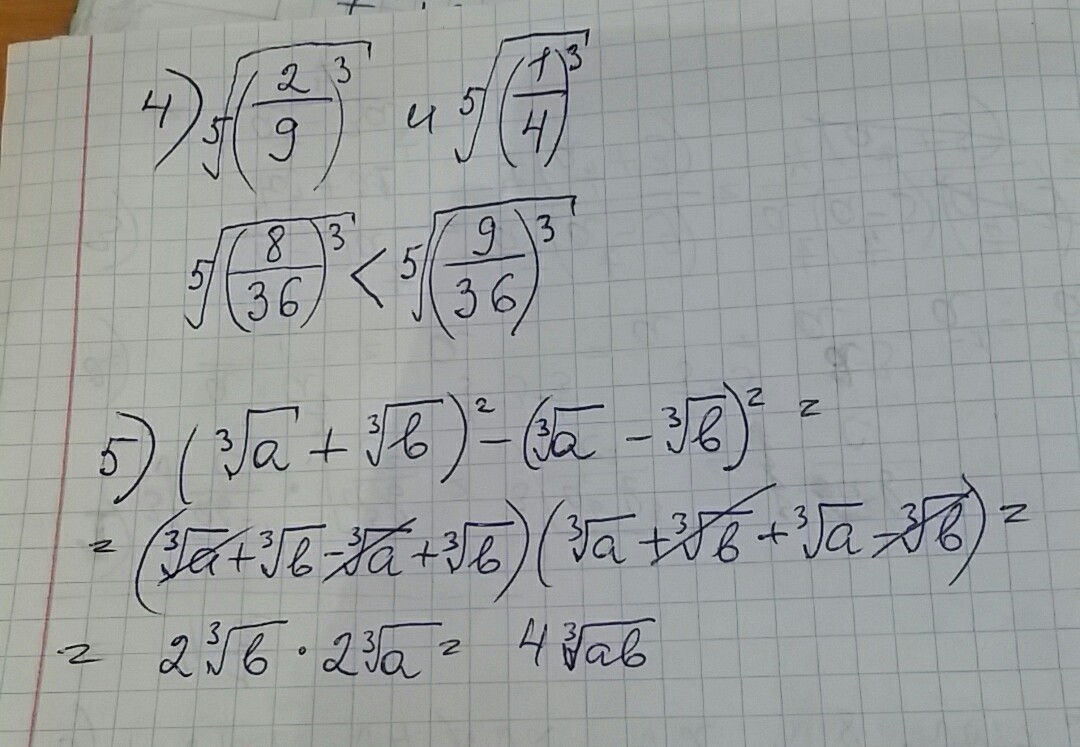 4) ⁵√(2/9)³ и ⁵√(1/4)³
⁵√(8/36)³ < ⁵√(9/36)³
5) (³√a + ³√b)² − (³√a − ³√b)² =
= (³√a + ³√b − ³√a + ³√b)(³√a + ³√b + ³√a − ³√b) =
= 2³√b · 2³√a = 4³√ab